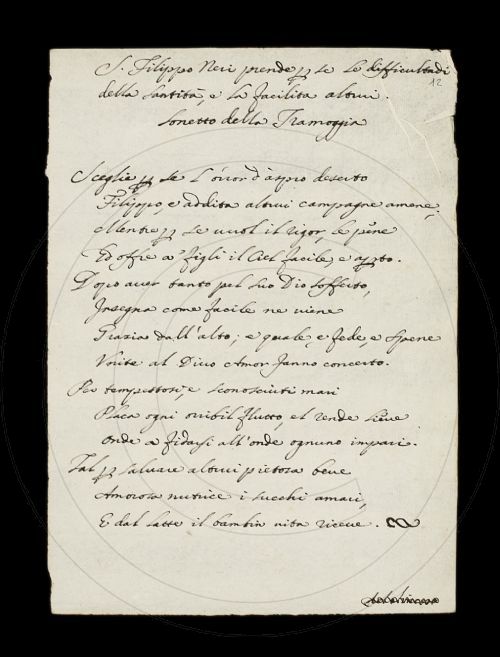 S. Filippo Neri prende p se le difficultadi
12
della santità, e la facilità altrui.
Sonetto della Tramoggia
Sceglie p se l'orror d'aspro deserto
Filippo, e addita altrui campagne amene;
Mentre p se vuol il rigor, le pene
Ed offre a' figli il Ciel facile, e apto.
Dopo aver tanto pel suo Dio sofferto,
Insegna come facile ne viene
Grazia dall'alto; e quale, e fede, e spene
Unite al Divo Amor fanno concerto.
Per tempestosi, e sconosciuti mari
Placa ogni orribil flutto, el rende lieve
Onde a fidarsi all'onde ognuno impari.
Tal p salvare altrui pietosa beve
Amorosa nutrice i succhi amari,
E dal latte il bambin vita riceve.